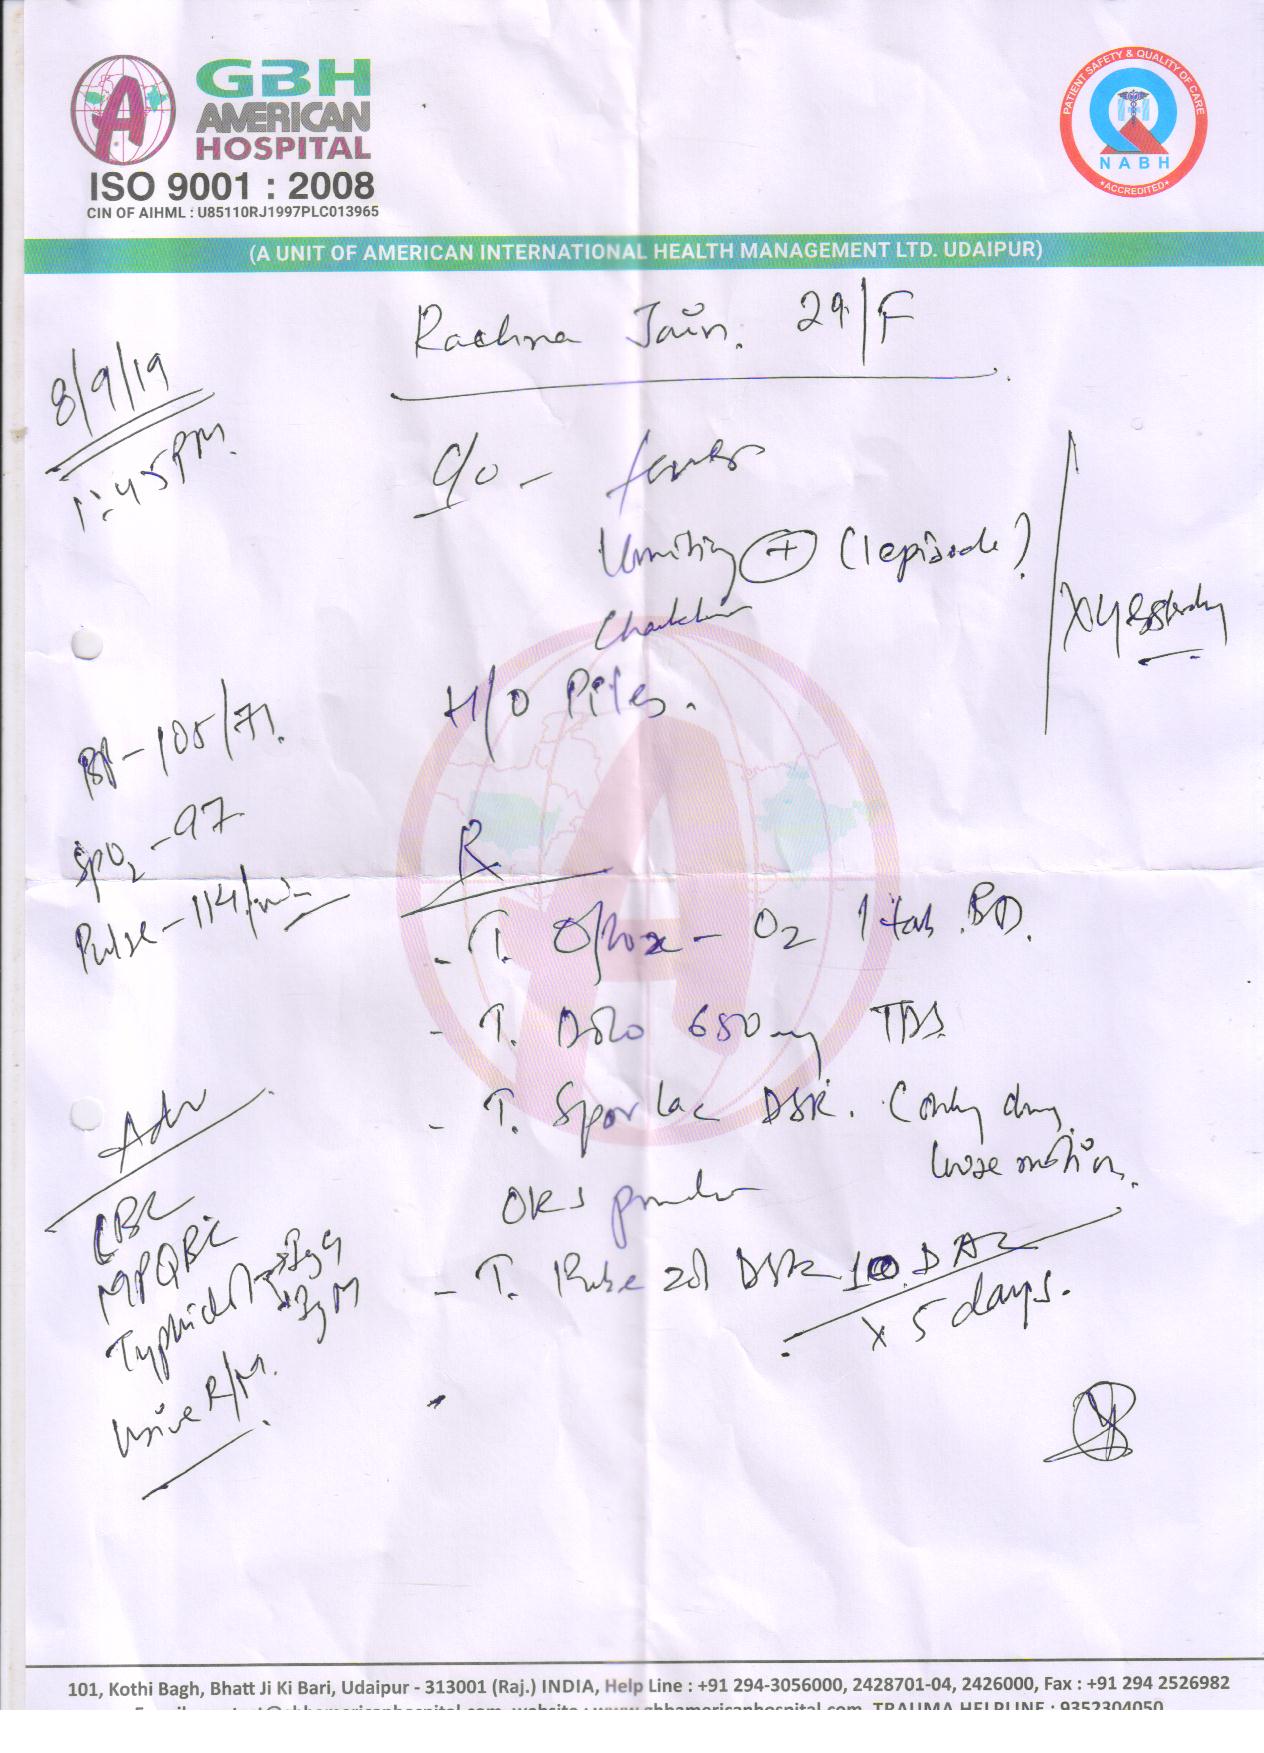 GBH
AMERICAN
HOSPITAL
ISO 9001 : 2008
CIN OF AIHML : U85110RJ1997PLC013965
PATIENT SAFETY & QUALITY OF CARE
NABH
•ACCREDITED•
(A UNIT OF AMERICAN INTERNATIONAL HEALTH MANAGEMENT LTD. UDAIPUR)
Rachna Jain. 29/F
8/9/19
1:45 PM.
C/o - fever
Vomiting + (1 episode)
x yesterday
H/O Piles.
BP - 105/71.
SpO2 - 97
Pulse - 114/min
R
- T. Oflox - O2 1 tab. BD.
- T. Dolo 650mg TDS
- T. Sporlac DSR. (only dry
loose motion.
ORS powder
- T. DSR 1 OD A
x 5 days.
Adv
CBC
MPQBC
Typhidot IgG
IgM
Urine R/M.
101, Kothi Bagh, Bhatt Ji Ki Bari, Udaipur - 313001 (Raj.) INDIA, Help Line : +91 294-3056000, 2428701-04, 2426000, Fax : +91 294 2526982
TRAUMA HELPLINE : 9352304050